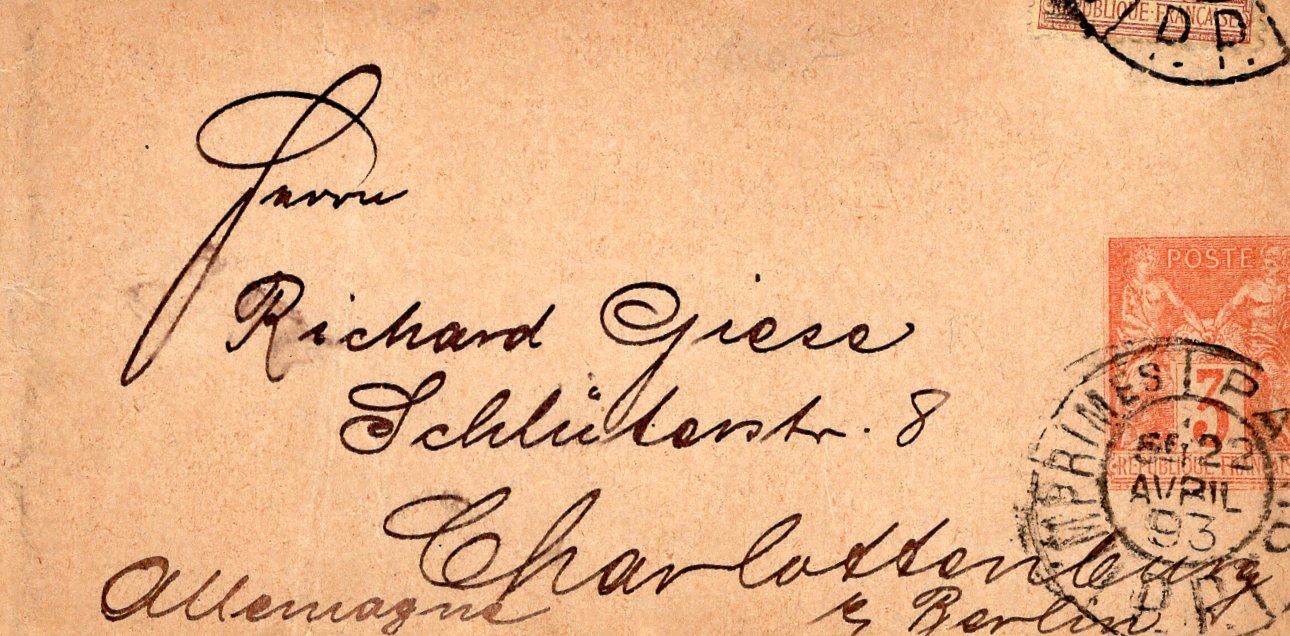 REPUBLIQUE·FRANÇAISE
D P
Herrn
Richard Giese
Schlüterstr. 8
Charlottenburg
Berlin.
Allemagne
POSTE
3
REPUBLIQUE FRANÇAIS
IMPRIMES PARIS
22
AVRIL
93